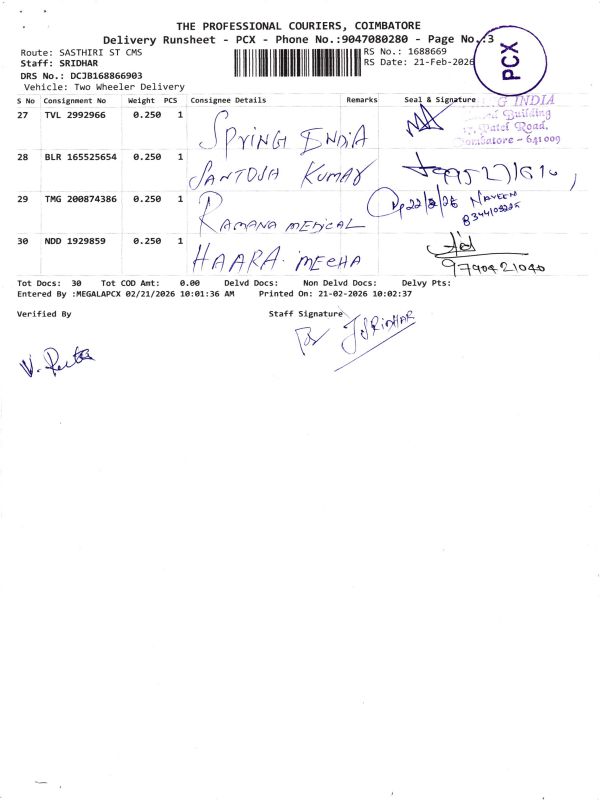 THE PROFESSIONAL COURIERS, COIMBATORE
Delivery Runsheet - PCX - Phone No.:9047080280 - Page No.:3
Route: SASTHIRI ST CMS RS No.: 1688669
Staff: SRIDHAR RS Date: 21-Feb-2026
DRS No.: DCJB168866903
Vehicle: Two Wheeler Delivery
PCX
S No Consignment No Weight PCS Consignee Details Remarks Seal & Signature
27 TVL 2992966 0.250 1 SPRING INDIA
NG INDIA
Building
Patel Road,
Coimbatore - 641 009
28 BLR 165525654 0.250 1 SANTOSH KUMAR
29 TMG 200874386 0.250 1 RAMANA MEDICAL 22/2/26 NAVEEN
30 NDD 1929859 0.250 1 HAARA. MECHA
9790421040
Tot Docs: 30 Tot COD Amt: 0.00 Delvd Docs: Non Delvd Docs: Delvy Pts:
Entered By :MEGALAPCX 02/21/2026 10:01:36 AM Printed On: 21-02-2026 10:02:37
Verified By Staff Signature
J SRIDHAR